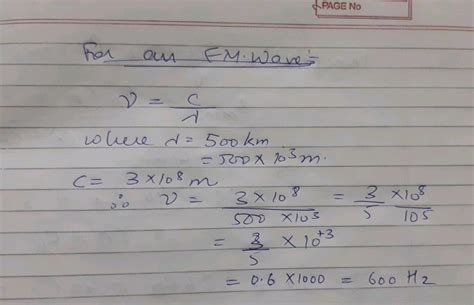 PAGE No
For an EM.Wave:-
ν = c/λ
where λ = 500km
= 500 × 10³m.
c = 3 × 10⁸ m
∴ ν = 3 × 10⁸ / 500 × 10³ = 3/5 × 10⁸/105
= 3/5 × 10⁺³
= 0.6 × 1000 = 600 Hz